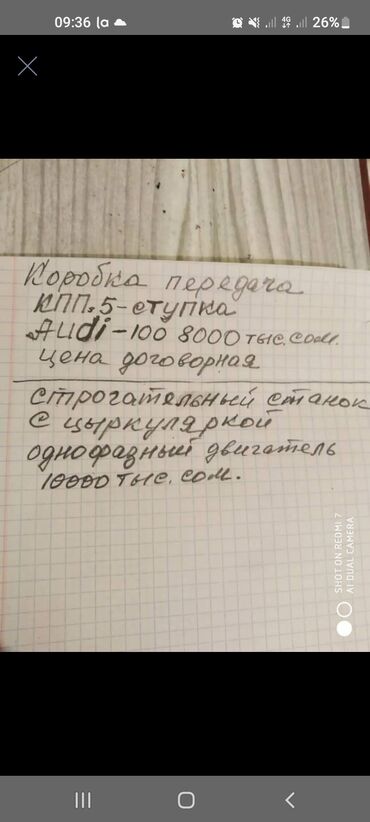 09:36 26%
Коробка передача
КПП.5-ступка
Audi-100 8000 тыс.сом.
цена договорная
строгательный станок
с цыркуляркой
однофазный двигатель
10000 тыс. сом.
SHOT ON REDMI 7
AI DUAL CAMERA